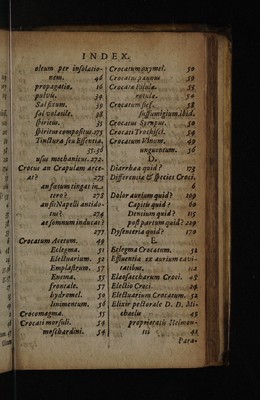 INDEX.
oleum per insolatio-
nem. 46
propagatio. 16
pulvis. 34
Sal fixum. 39
sal volatile. 38
spiritus. 35
spiritus compositus. 275
Tinctura seu Essentia.
35.36
usus mechanicus. 272.
Crocus an Crapulam arce-
at? 275
an fœtum tingat in u-
tero? 278
an sit Napelli antido-
tus? 274
an somnum inducat?
277
Crocatum Acetum. 49
Eclegma. 51
Electuarium. 52
Emplastrum. 57
Enema. 55
frontale. 57
hydromel. 50
linimentum. 56
Crocomagma. 55
Crocati morsuli. 54
moschardini. 54
Crocatum oxymel. 50
Crocatus pannus 59
Crocatæ pilulæ. 35
rotulæ. 54
Crocatum sief. 58
suffumigium. ibid.
Crocatus Syrupus. 50
Crocati Trochisci. 54
Crocatum Vinum. 49
unguentum. 56
D.
Diarrhœa quid? 173
Differentiæ & species Croci.
6
Dolor aurium quid? 109
Capitis quid? 60
Dentium quid? 115
post partum quid? 229
Dysenteria quid? 170
E.
Eclegma Crocatum. 51
Effluentia ex aurium cavi-
tatibus. 112
Elæosaccharum Croci. 48
Electio Croci. 24
Electuarium Crocatum. 52
Elixir pectorale D. D. Mi-
chaelis 45
proprietatis
42